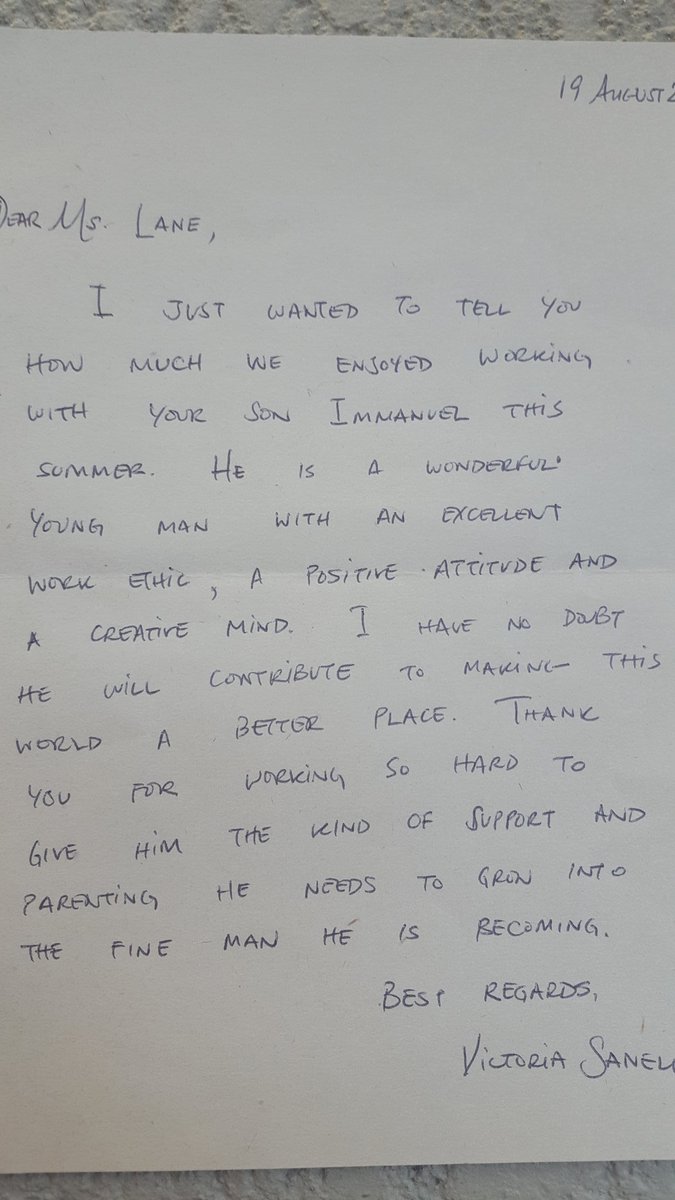 19 AUGUST
DEAR MS. LANE,
I JUST WANTED TO TELL YOU
HOW MUCH WE ENJOYED WORKING
WITH YOUR SON IMMANUEL THIS
SUMMER. HE IS A WONDERFUL
YOUNG MAN WITH AN EXCELLENT
WORK ETHIC, A POSITIVE ATTITUDE AND
A CREATIVE MIND. I HAVE NO DOUBT
HE WILL CONTRIBUTE TO MAKING THIS
WORLD A BETTER PLACE. THANK
YOU FOR WORKING SO HARD TO
GIVE HIM THE KIND OF SUPPORT AND
PARENTING HE NEEDS TO GROW INTO
THE FINE MAN HE IS BECOMING.
BEST REGARDS,
VICTORIA